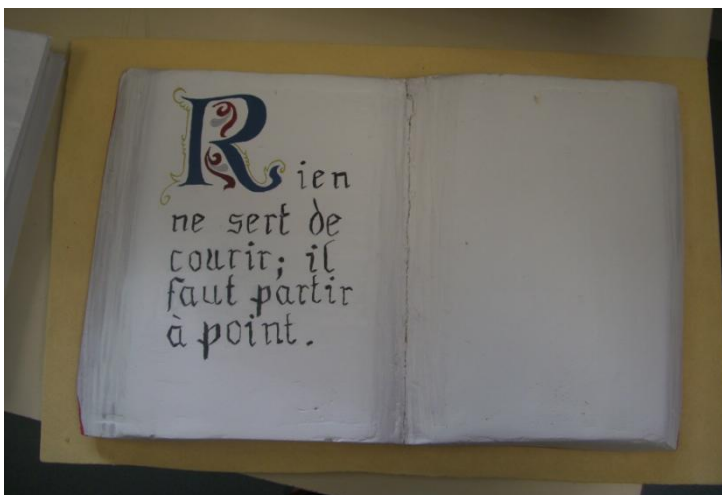 Rien
ne sert de
courir; il
faut partir
à point.